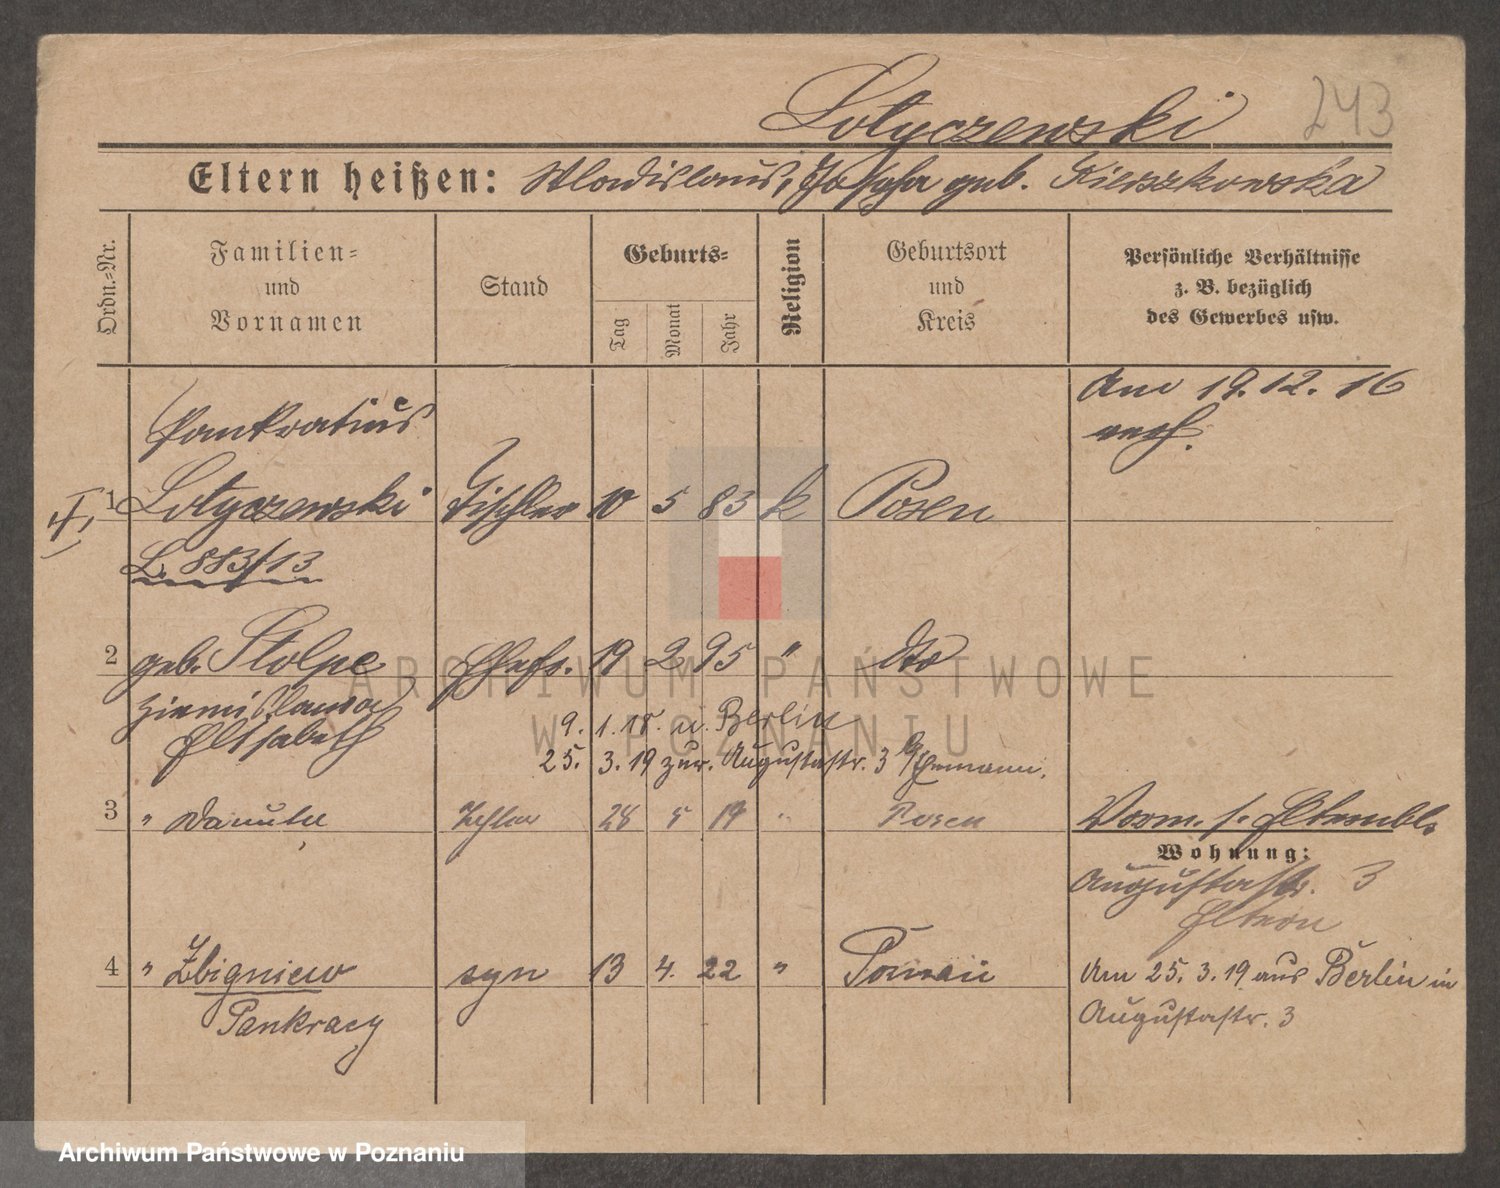 Lotyczewski 243
Eltern heißen: Wladislaus, Josepha geb. Kierszkowska
Ordn.-Nr.
Familien-
und
Vornamen
Stand
Geburts-
Tag
Monat
Jahr
Religion
Geburtsort
und
Kreis
Persönliche Verhältnisse
z. B. bezüglich
des Gewerbes usw.
Am 19.12.16
verh.
Pankratius
1 Lotyczewski Tischler 10 5 83 k Posen
L. 883/13
2 geb. Stolpe Ehefr. 19 2 95 " dto
Ziemislawa
Elisabeth
9. 1. 18. n. Berlin
25. 3. 19 zur. Augustastr. 3 Ehemann.
3 " Danuta Tochter 28 5 19 " Posen
Vorm. s. Elternbl.
Wohnung:
Augustastr. 3
Eltern
4 " Zbigniew syn 13 4. 22 " Poznań
Pankracy
Am 25. 3. 19 aus Berlin in
Augustastr. 3
ARCHIWUM PAŃSTWOWE
W POZNANIU
Archiwum Państwowe w Poznaniu